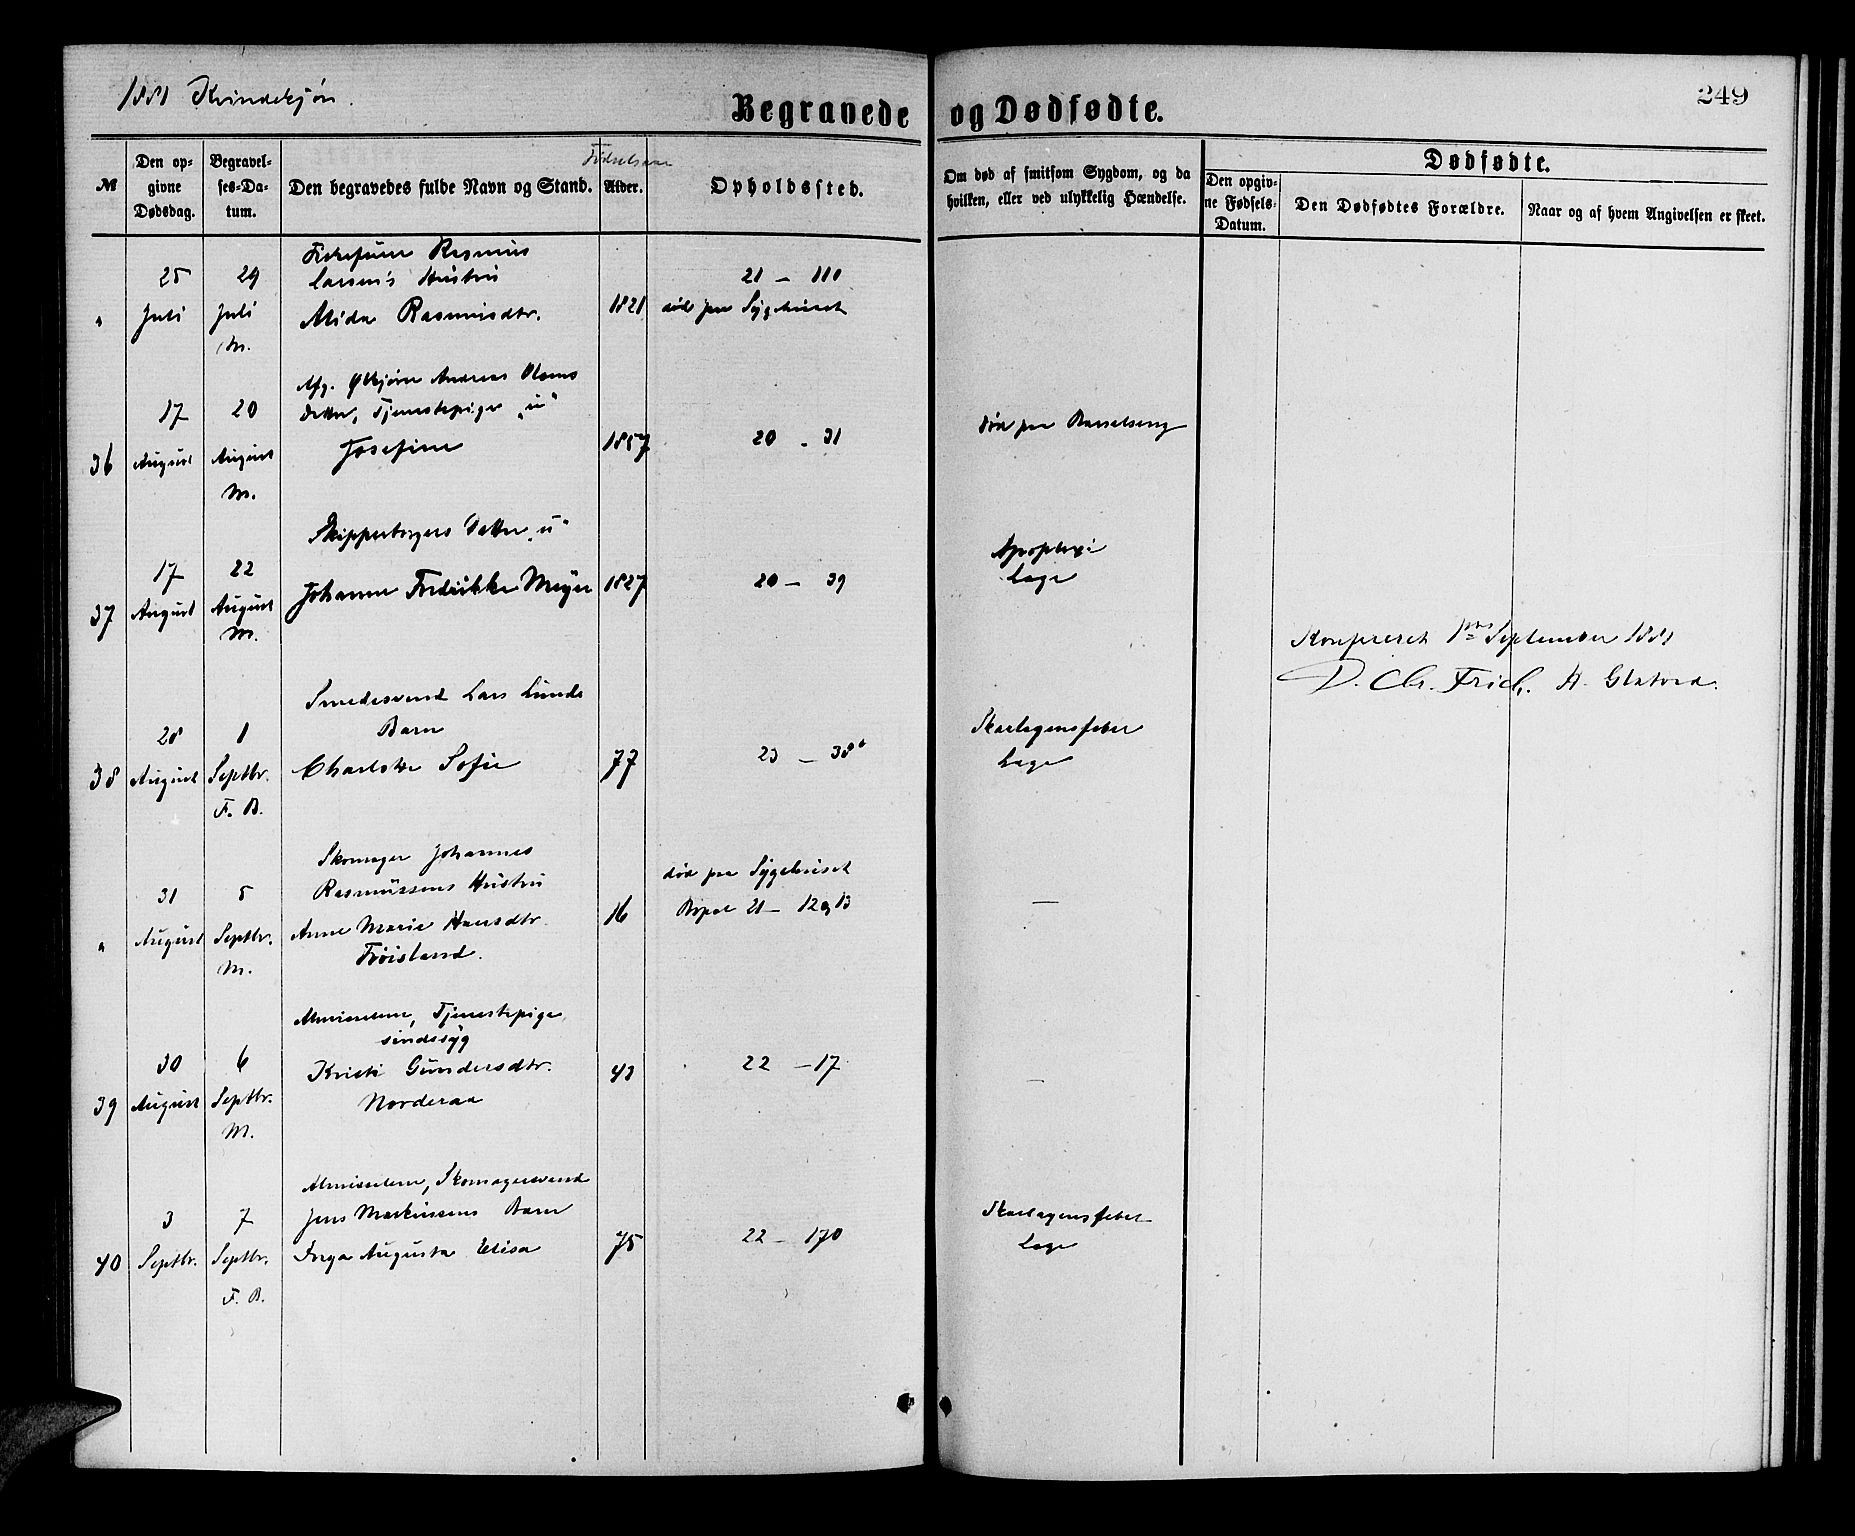 1881 Kvindekjøn.
Begravede og Dødfødte.
249
№
Den opgivne Dødsdag.
Begravelses-Datum.
Den begravedes fulde Navn og Stand.
Fødselsaar
Alder.
Opholdssted.
Om død af smitsom Sygdom, og da hvilken, eller ved ulykkelig Hændelse.
Dødfødte.
Den opgivne Fødsels-Datum.
Den Dødfødtes Forældre.
Naar og af hvem Angivelsen er skeet.
"
25 Juli
29 Juli M.
Rasmus
Larsens Hustru
Alida Rasmusdtr.
1821
21 – 110
død paa Sygehuset
36
17 August
20 August M.
Afg. Andreas Olsens
Datter, Tjenestepige „u"
Josefine
1857
20 - 31
død paa Barselseng
37
17 August
22 August M.
Skipperborgers Datter „u"
Johanne Fredrikke Meyer
1827
20 – 39
Apoplexi
Læge
Konfereret 1ste September 1881
D. Chr. Frich. A. Glatved.
38
28 August
1 Septbr. F. B.
Smedesvend Lars Lunds
Barn
Charlotte Sofie
77
23 – 38b
Skarlagensfeber
Læge
"
31 August
5 Septbr. M.
Skomager Johannes
Rasmussens Hustru
Anne Marie Hansdtr.
Frøisland.
16
død paa Sygehuset
Bopæl 21 – 12 og 13
—
39
30 August
6 Septbr. M.
Almisselem, Tjenestepige,
sindssyg
Kristi Gundersdtr.
Norderaa
43
22 – 17
—
40
3 Septbr.
7 Septbr. F. B.
Almisselem, Skomagersvend
Jens Markussens Barn
Inga Augusta Elisa
75
22 – 170
Skarlagensfeber
Læge